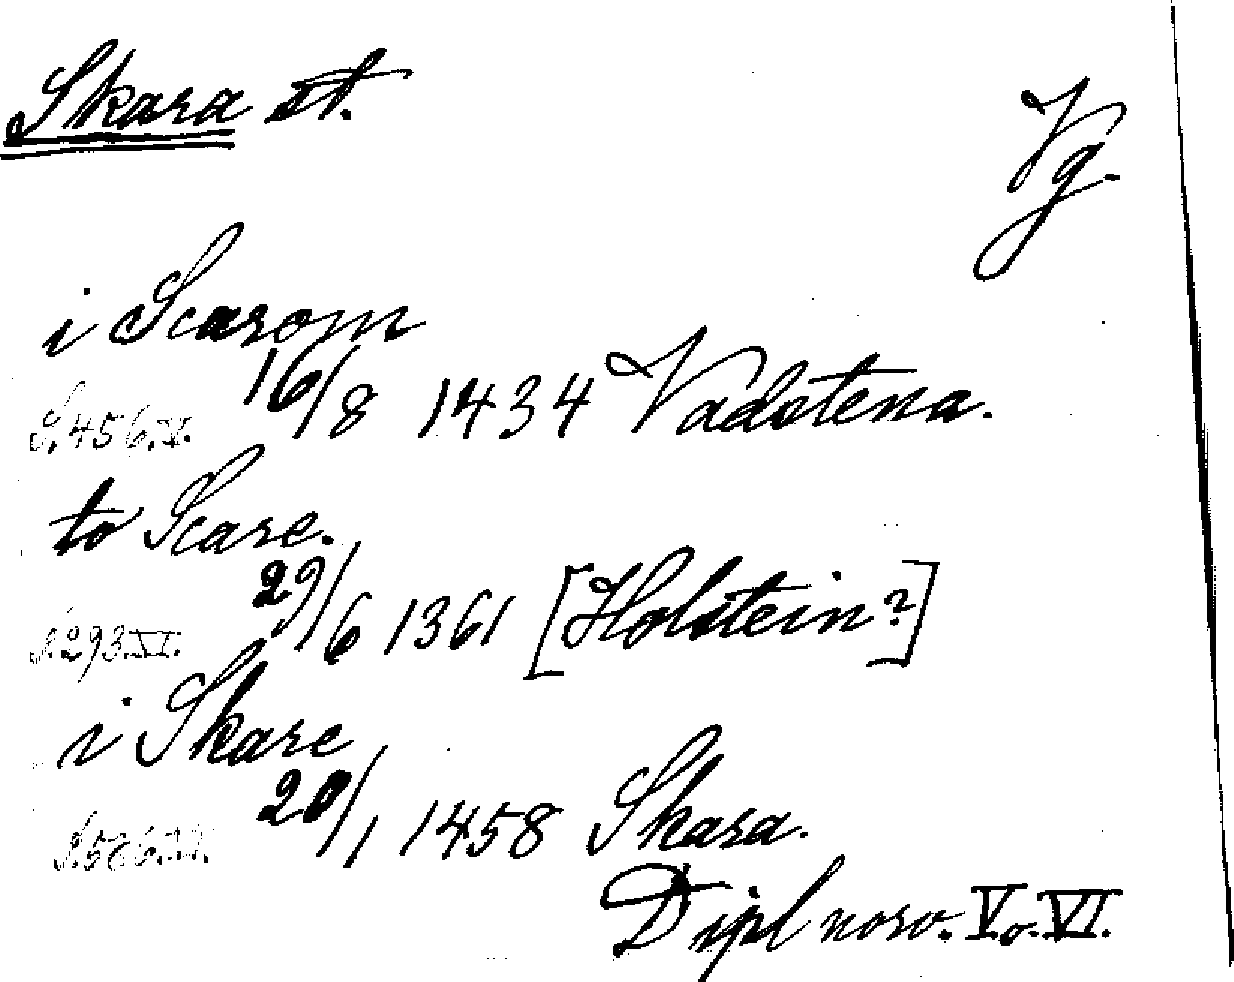 Skara st.
Vg.
i Scarom
16/8 1434 Vadstena.
S. 456. V.
to Scare.
29/6 1361 [Holstein?]
S. 293. VI.
i Skare
20/1 1458 Skara.
Dipl norv. V. o. VI.